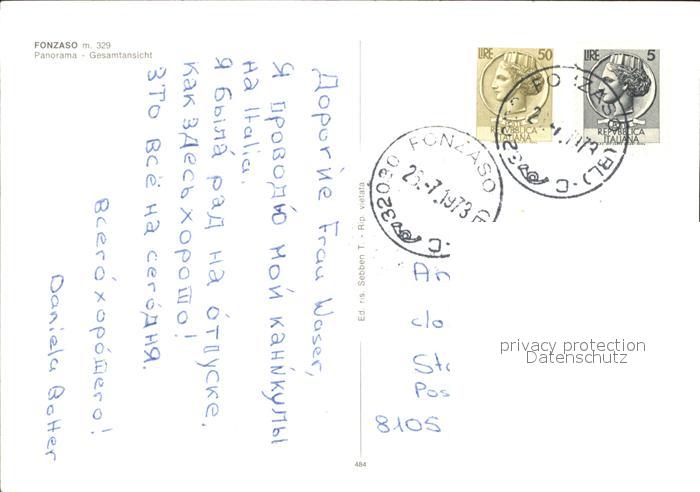 FONZASO m. 329
Panorama - Gesamtansicht
Дорогие Frau Waser,
Я проводю мой каникулы
на Italia.
Я была рад на отпуске.
Как здесь хорошо!
Это всё на сегодня.
Всего хорошего!
Daniela Botter
Ed. ris. Sebben T. - Rip. vietata
484
LIRE 50
REPVBBLICA
ITALIANA
LIRE 5
REPVBBLICA
ITALIANA
32030 FONZASO
25.-7.1973
32030 FONZASO (BL)
An
c/o
Sta
Pos
8105
privacy protection
Datenschutz